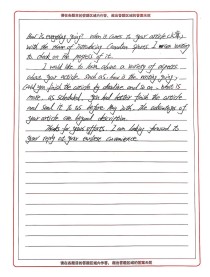 请在各题目的答题区域内作答，超出答题区域的答案无效
How is everything going? when it comes to your article
with the theme of introducing Canadian Sports I am writing
to check on the progress of it.
I would like to know about a variety of aspects
about your article. Such as: how is the writing going,
can you finish the article by deadline and so on. what is
more, as scheduled, you had better finish the article
and send it to us before May 10th. The advantage of
your article can beyond description.
Thanks for your efforts. I am looking forward to
your reply at your earliest convenience.
请在各题目的答题区域内作答，超出答题区域的答案无效